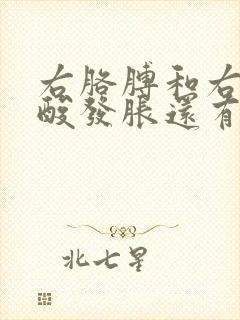 右胳膊和右
酸發脹還有
北七星